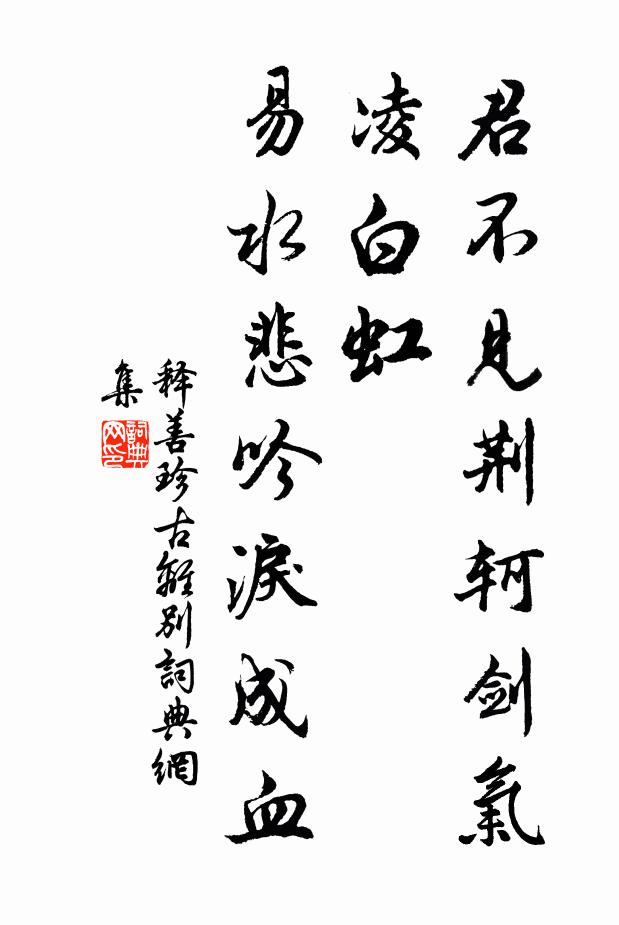 君不見荆軻剑氣
凌白虹
易水悲吟淚成血
释善珍古離别詞典網
集
詞典
网印